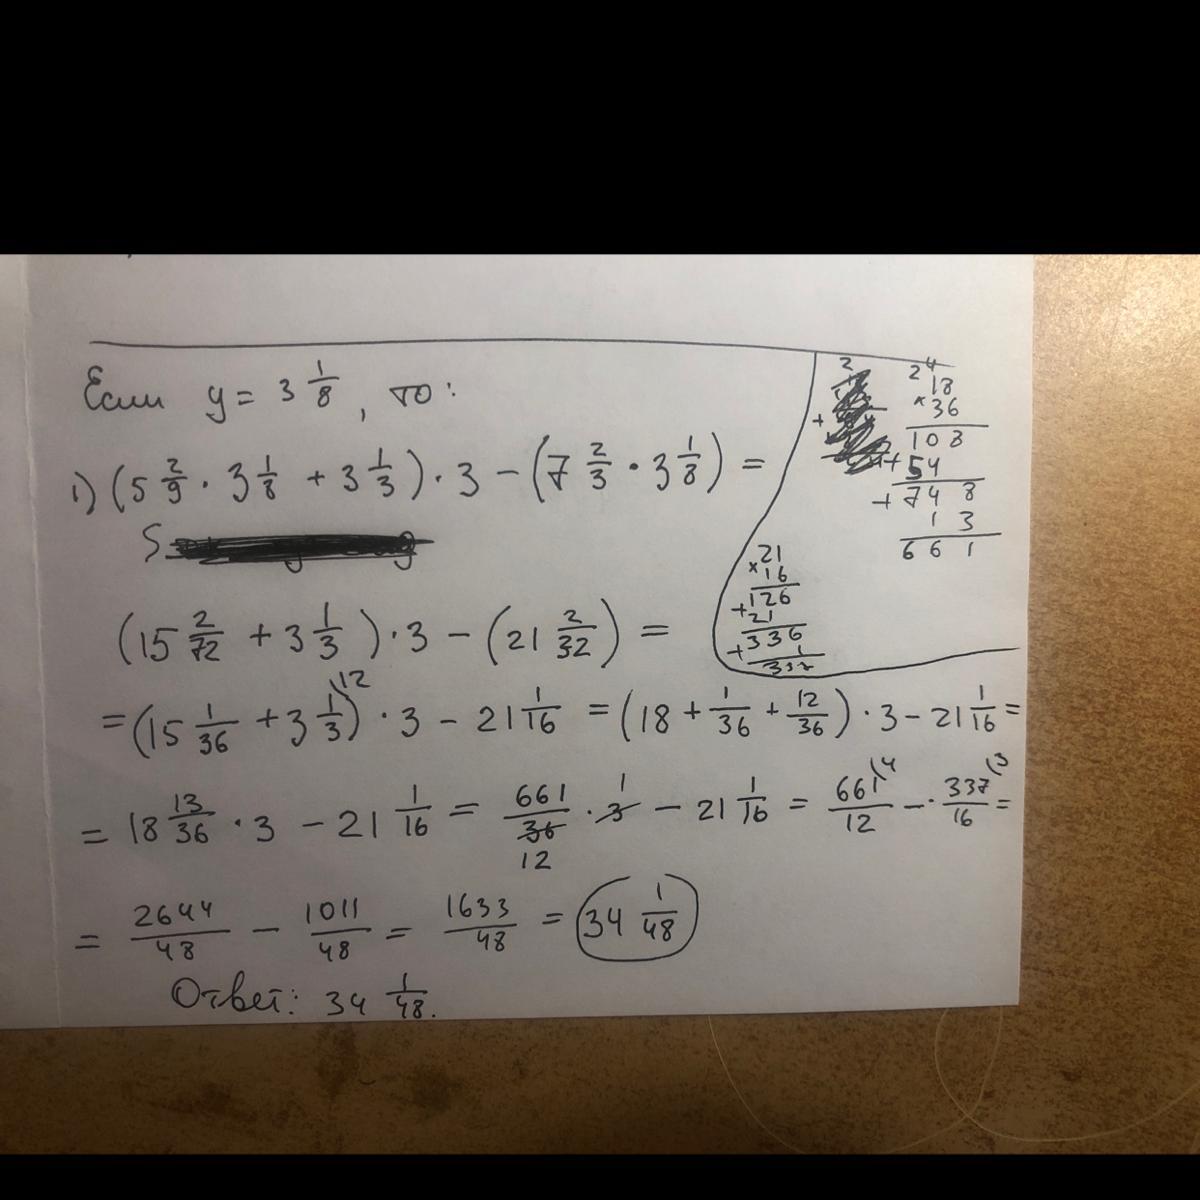 Если y = 3 1/8, то:
1) (5 2/9 · 3 1/8 + 3 1/3) · 3 - (7 2/3 · 3 1/8) =
5
(15 2/72 + 3 1/3) · 3 - (21 2/32) =
= (15 1/36 + 3 1/3\12) · 3 - 21 1/16 = (18 + 1/36 + 12/36) · 3 - 21 1/16 =
= 18 13/36 · 3 - 21 1/16 = 661/36 12 · 3 1 - 21 1/16 = 661\4/12 - · 337\3/16 =
= 2644/48 - 1011/48 = 1633/48 = 34 1/48
Ответ: 34 1/48.
2
+
2 4
18
× 36
108
+ 54
+ 748
13
661
21
× 16
126
+ 21
336
+ 1
337